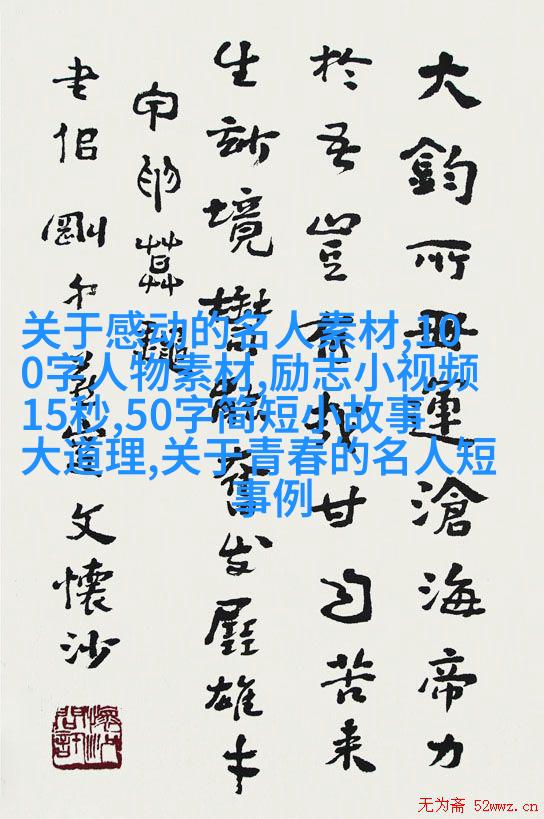 大鈞所毋運滄海帝力
於吾豈有哉甘自苦来
生境奮发雄才
老侶剛文懷沙
关于感动的名人素材,10
0字人物素材,励志小视频
15秒,50字简短小故事
大道理,关于青春的名人短
事例
无为斋 52wwz.cn